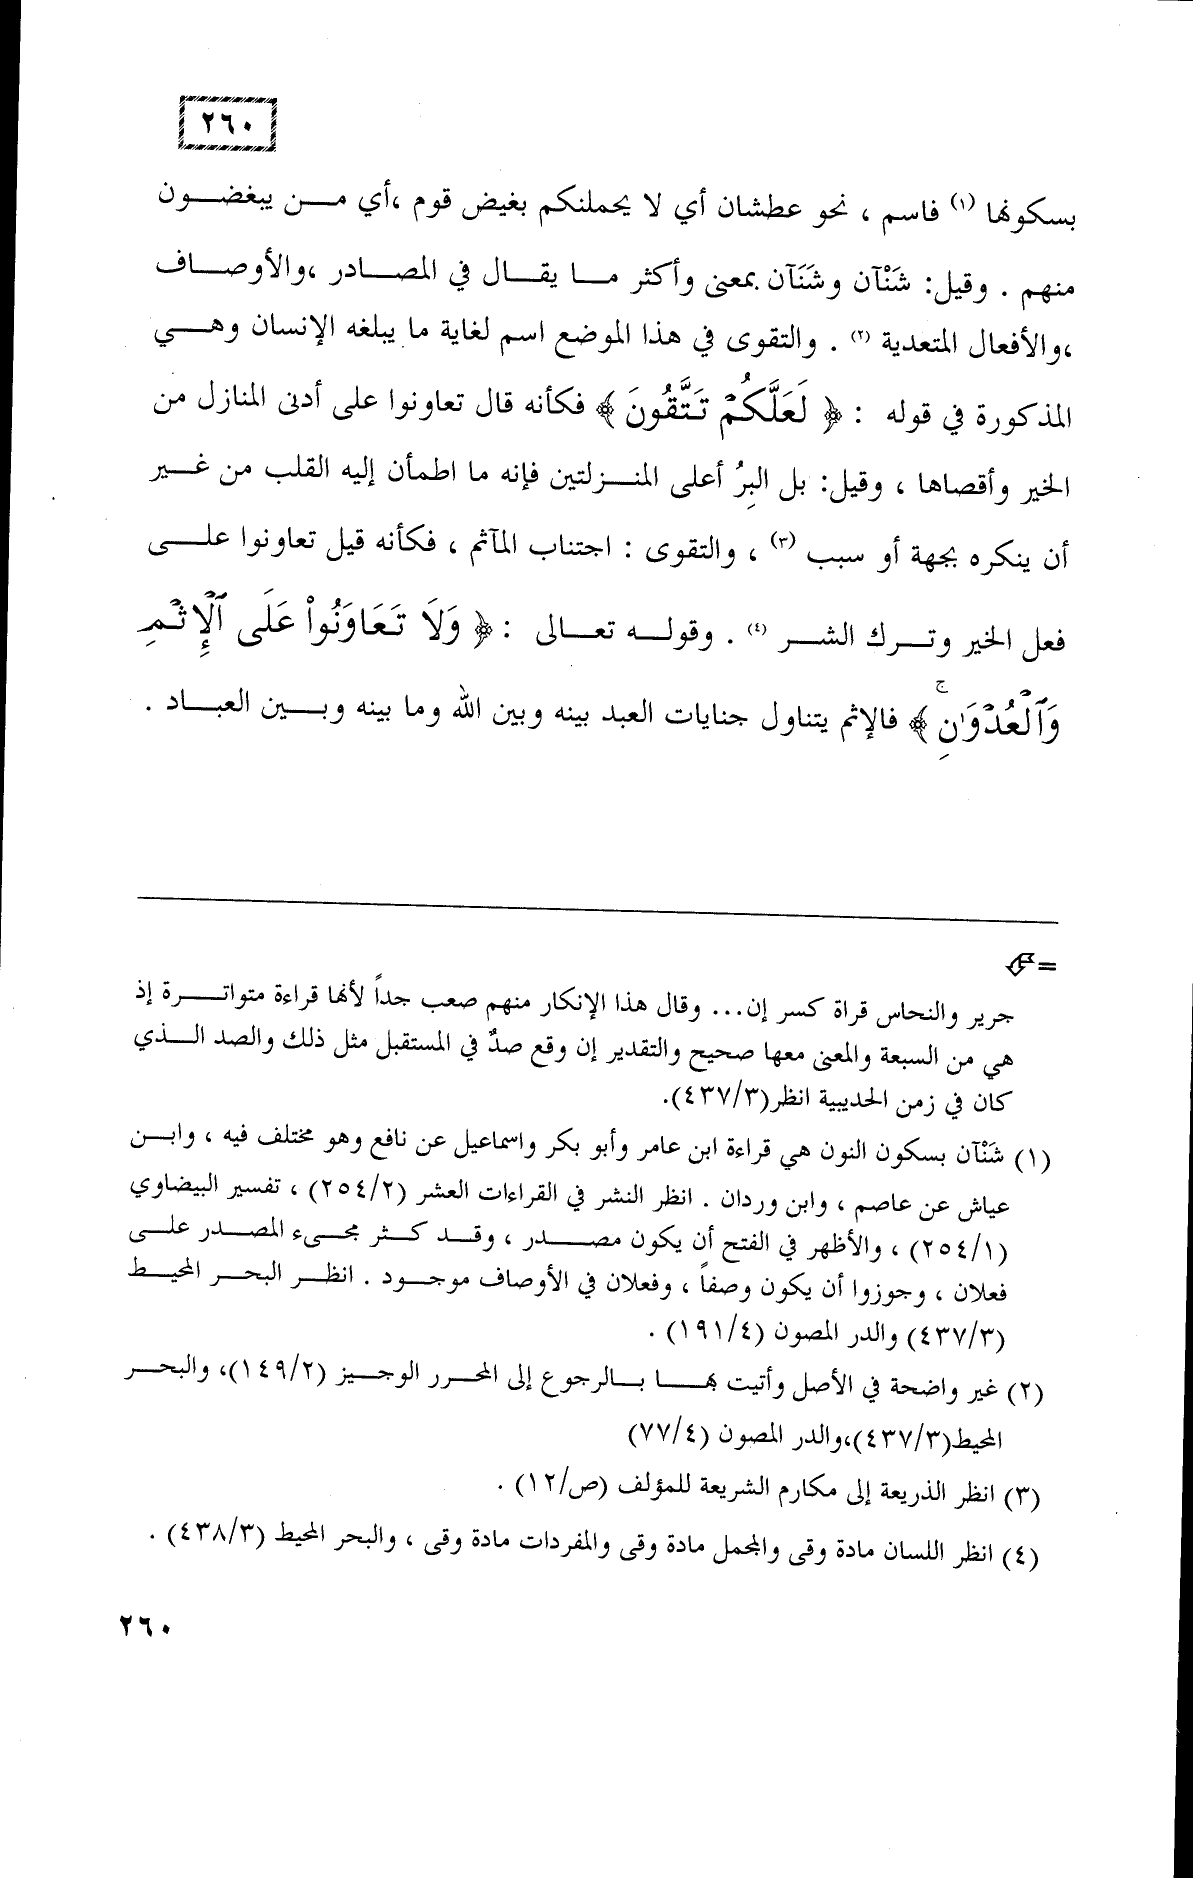 ٢٦٠
بسكونها (١) فاسم ، نحو عطشان أي لا يحملنكم بغيض قوم ،أي من يبغضون
منهم . وقيل: شَنْآن وشَنَآن بمعنى وأكثر ما يقال في المصادر ،والأوصاف
،والأفعال المتعدية (٢) . والتقوى في هذا الموضع اسم لغاية ما يبلغه الإنسان وهي
المذكورة في قوله : ﴿ لَعَلَّكُمْ تَتَّقُونَ ﴾ فكأنه قال تعاونوا على أدنى المنازل من
الخير وأقصاها ، وقيل: بل البِرُ أعلى المنزلتين فإنه ما اطمأن إليه القلب من غير
أن ينكره بجهة أو سبب (٣) ، والتقوى : اجتناب المآثم ، فكأنه قيل تعاونوا على
فعل الخير وترك الشر (٤) . وقوله تعالى : ﴿ وَلَا تَعَاوَنُوا۟ عَلَى ٱلْإِثْمِ
وَٱلْعُدْوَٰنِ ۚ ﴾ فالإثم يتناول جنايات العبد بينه وبين الله وما بينه وبين العباد .
=
جرير والنحاس قراة كسر إن... وقال هذا الإنكار منهم صعب جداً لأنها قراءة متواترة إذ
هي من السبعة والمعنى معها صحيح والتقدير إن وقع صدٌ في المستقبل مثل ذلك والصد الذي
كان في زمن الحديبية انظر(٤٣٧/٣).
(١) شَنْآن بسكون النون هي قراءة ابن عامر وأبو بكر واسماعيل عن نافع وهو مختلف فيه ، وابن
عياش عن عاصم ، وابن وردان . انظر النشر في القراءات العشر (٢٥٤/٢) ، تفسير البيضاوي
(٢٥٤/١) ، والأظهر في الفتح أن يكون مصدر ، وقد كثر مجيء المصدر على
فعلان ، وجوزوا أن يكون وصفاً ، وفعلان في الأوصاف موجود . انظر البحر المحيط
(٤٣٧/٣) والدر المصون (١٩١/٤) .
(٢) غير واضحة في الأصل وأتيت بها بالرجوع إلى المحرر الوجيز (١٤٩/٢)، والبحر
المحيط(٤٣٧/٣)،والدر المصون (٧٧/٤)
(٣) انظر الذريعة إلى مكارم الشريعة للمؤلف (ص/١٢) .
(٤) انظر اللسان مادة وقى والمجمل مادة وقى والمفردات مادة وقى ، والبحر المحيط (٤٣٨/٣) .
٢٦٠